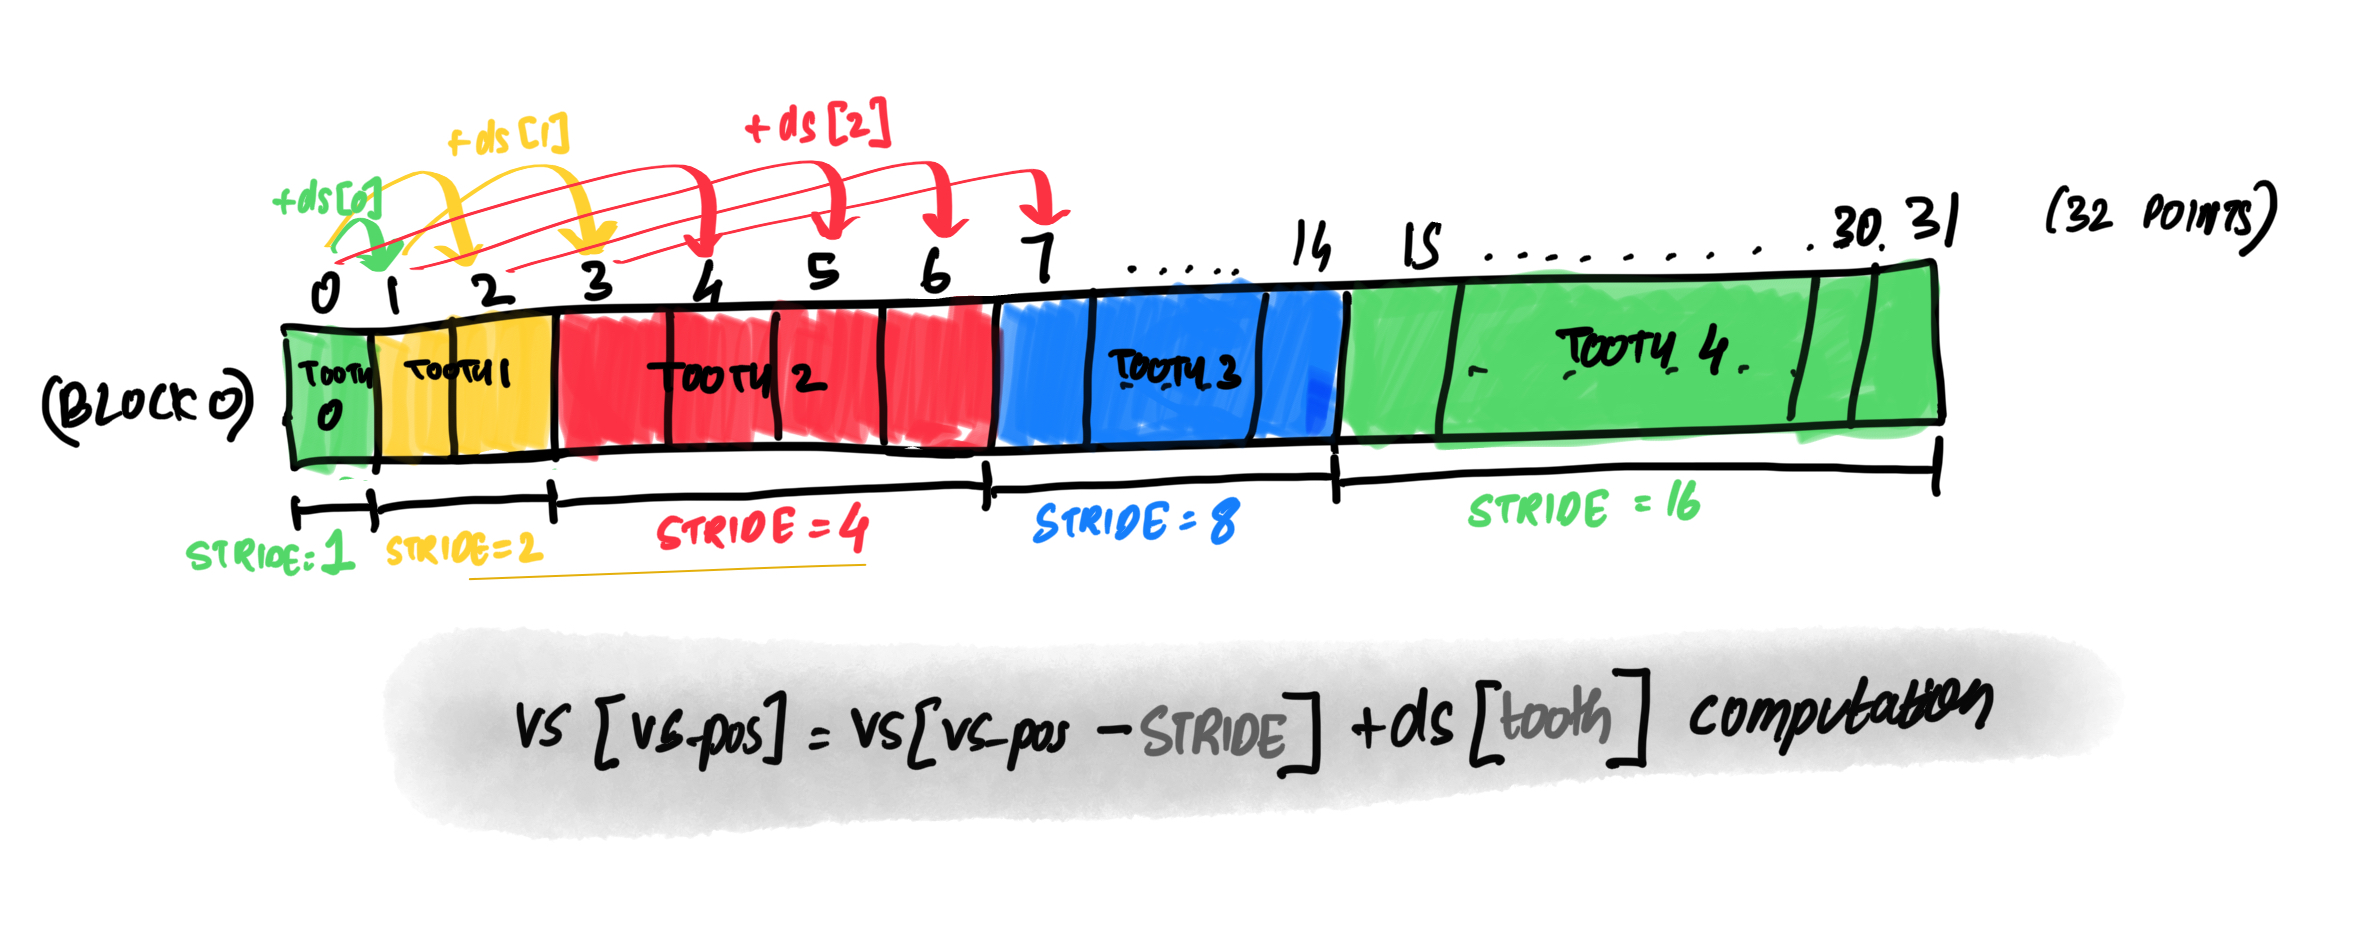 +ds[0] +ds[1] +ds[2]
0 1 2 3 4 5 6 7 ..... 14 15 .......... 30. 31 (32 POINTS)
(BLOCK 0) TOOTH 0 TOOTH 1 TOOTH 2 TOOTH 3 TOOTH 4
STRIDE=1 STRIDE=2 STRIDE=4 STRIDE=8 STRIDE=16
vs[vs_pos] = vs[vs_pos - STRIDE] + ds[tooth] computation